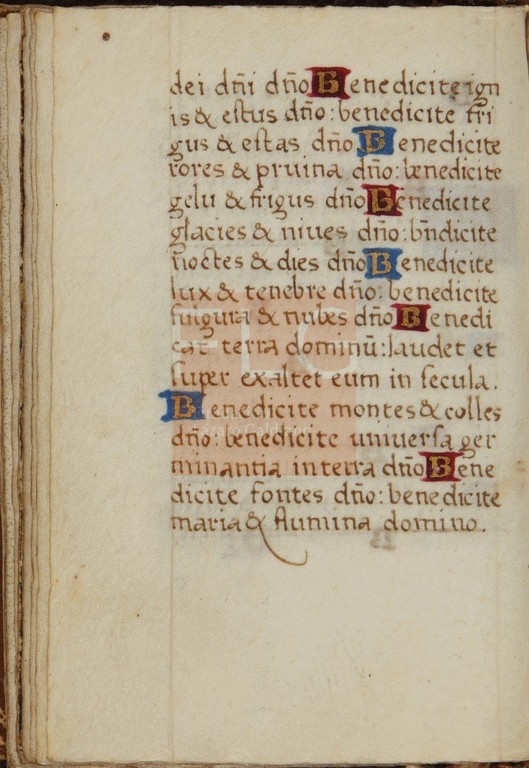 dei dñi dño Benedicite ign
is & estus dño: benedicite fri
gus & estas dño Benedicite
rores & pruina dño: benedicite
gelu & frigus dño Benedicite
glacies & niues dño: bñdicite
noctes & dies dño Benedicite
lux & tenebre dño: benedicite
fulgura & nubes dño Benedi
cat terra dominũ: laudet et
super exaltet eum in secula.
Benedicite montes & colles
dño: benedicite uniuersa ger
minantia in terra dño Bene
dicite fontes dño: benedicite
maria & flumina domino.